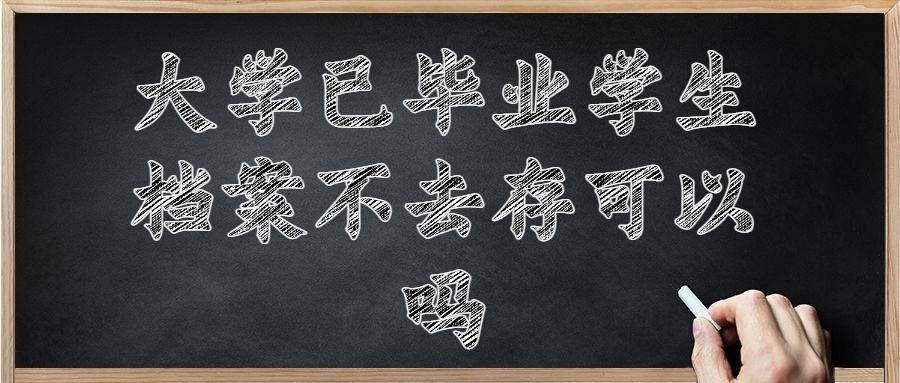 大学已毕业学生
档案不去存可以
吗